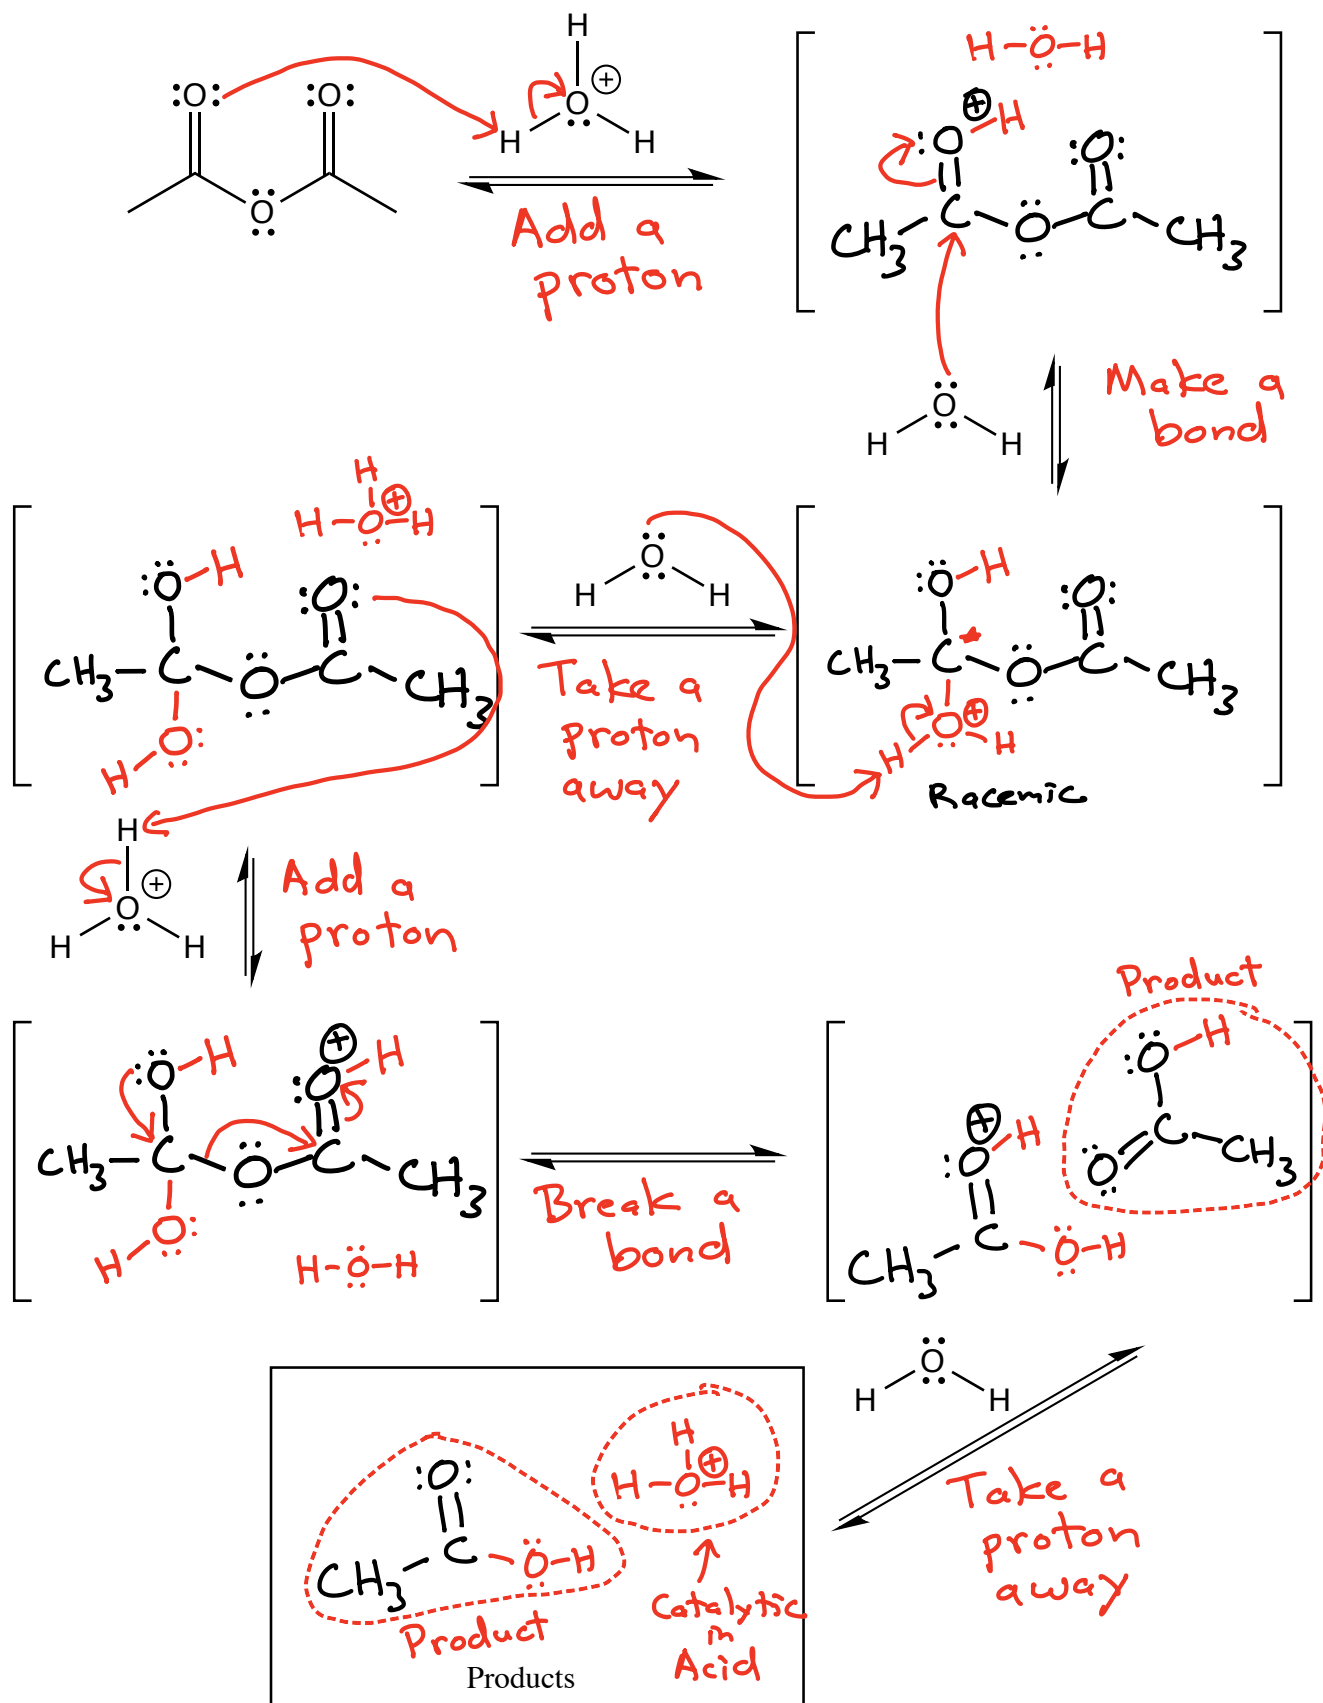 H
:O: :O: O ⊕
H H
O
Add a
proton
H-O-H
⊕
:O-H :O:
CH3 C O C CH3
H O H
Make a
bond
H
H-O-H ⊕
:O-H :O:
CH3-C-O-C-CH3
H-O:
H O H
Take a
proton
away
:O-H :O:
CH3-C*-O-C-CH3
H-O-H ⊕
Racemic
H
O ⊕
H H
Add a
proton
:O-H ⊕ :O-H
CH3-C-O-C-CH3
H-O:
H-O-H
Break a
bond
Product
:O-H
C
O CH3
⊕
:O-H
C
CH3 O-H
H O H
Take a
proton
away
:O:
C
CH3 O-H
Product
H
H-O-H ⊕
Catalytic
in
Acid
Products